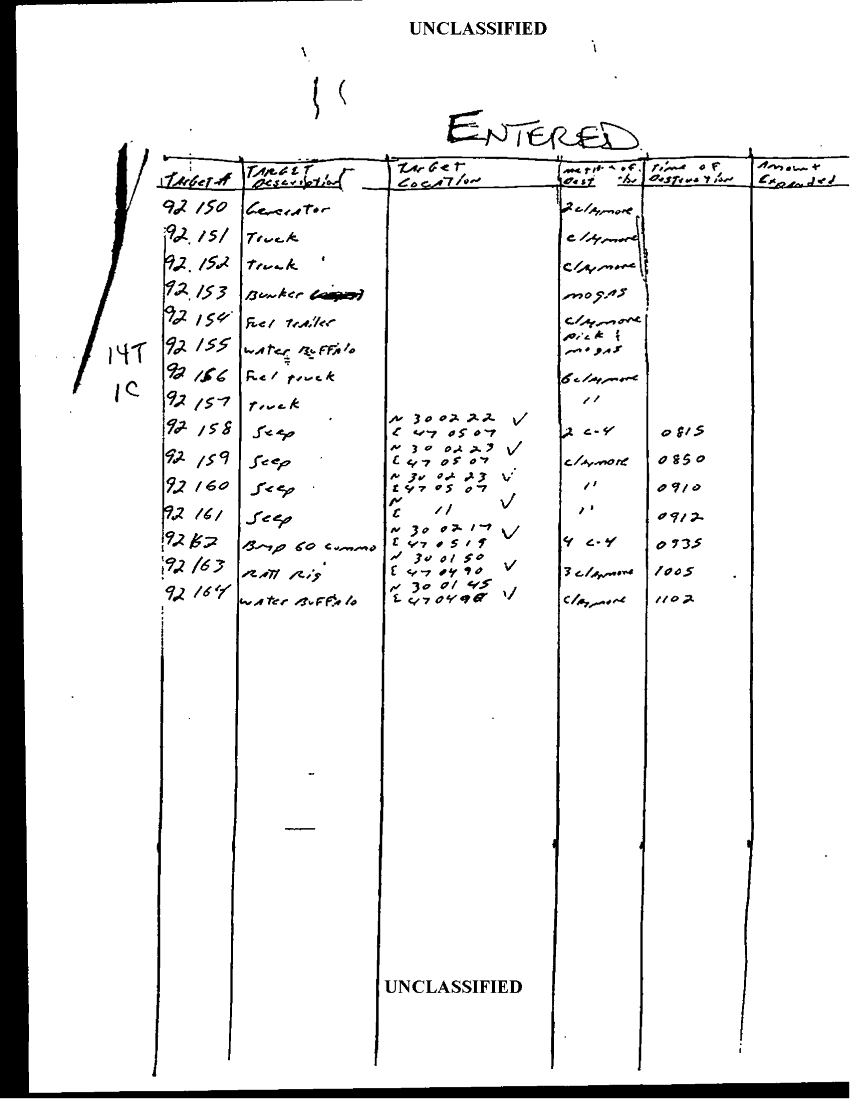 UNCLASSIFIED
ENTERED
TARGET # TARGET Description TARGET LOCATION Method of Time of Destruction Amount Expended
92 150 Generator 2 claymore
92 151 Truck claymore
92 152 Truck claymore
92 153 Bunker mogas
92 154 Fuel Trailer claymore
92 155 WATER BuFFAlo Pick & mogas
14T
92 156 Fuel truck 6 claymore
1C
92 157 truck "
92 158 Jeep N 30 02 22 E 47 05 07 ✓ 2 C-4 0815
92 159 Jeep N 30 02 23 E 47 05 07 ✓ claymore 0850
92 160 Jeep N 30 02 23 E 47 05 07 ✓ " 0910
92 161 Jeep N E " ✓ " 0912
92 162 Bmp 60 commo N 30 02 17 E 47 05 19 ✓ 4 C-4 0935
92 163 RATT Rig N 30 01 50 E 47 04 90 ✓ 3 claymore 1005
92 164 WATER BuFFAlo N 30 01 45 E 47 04 98 ✓ claymore 1102
UNCLASSIFIED